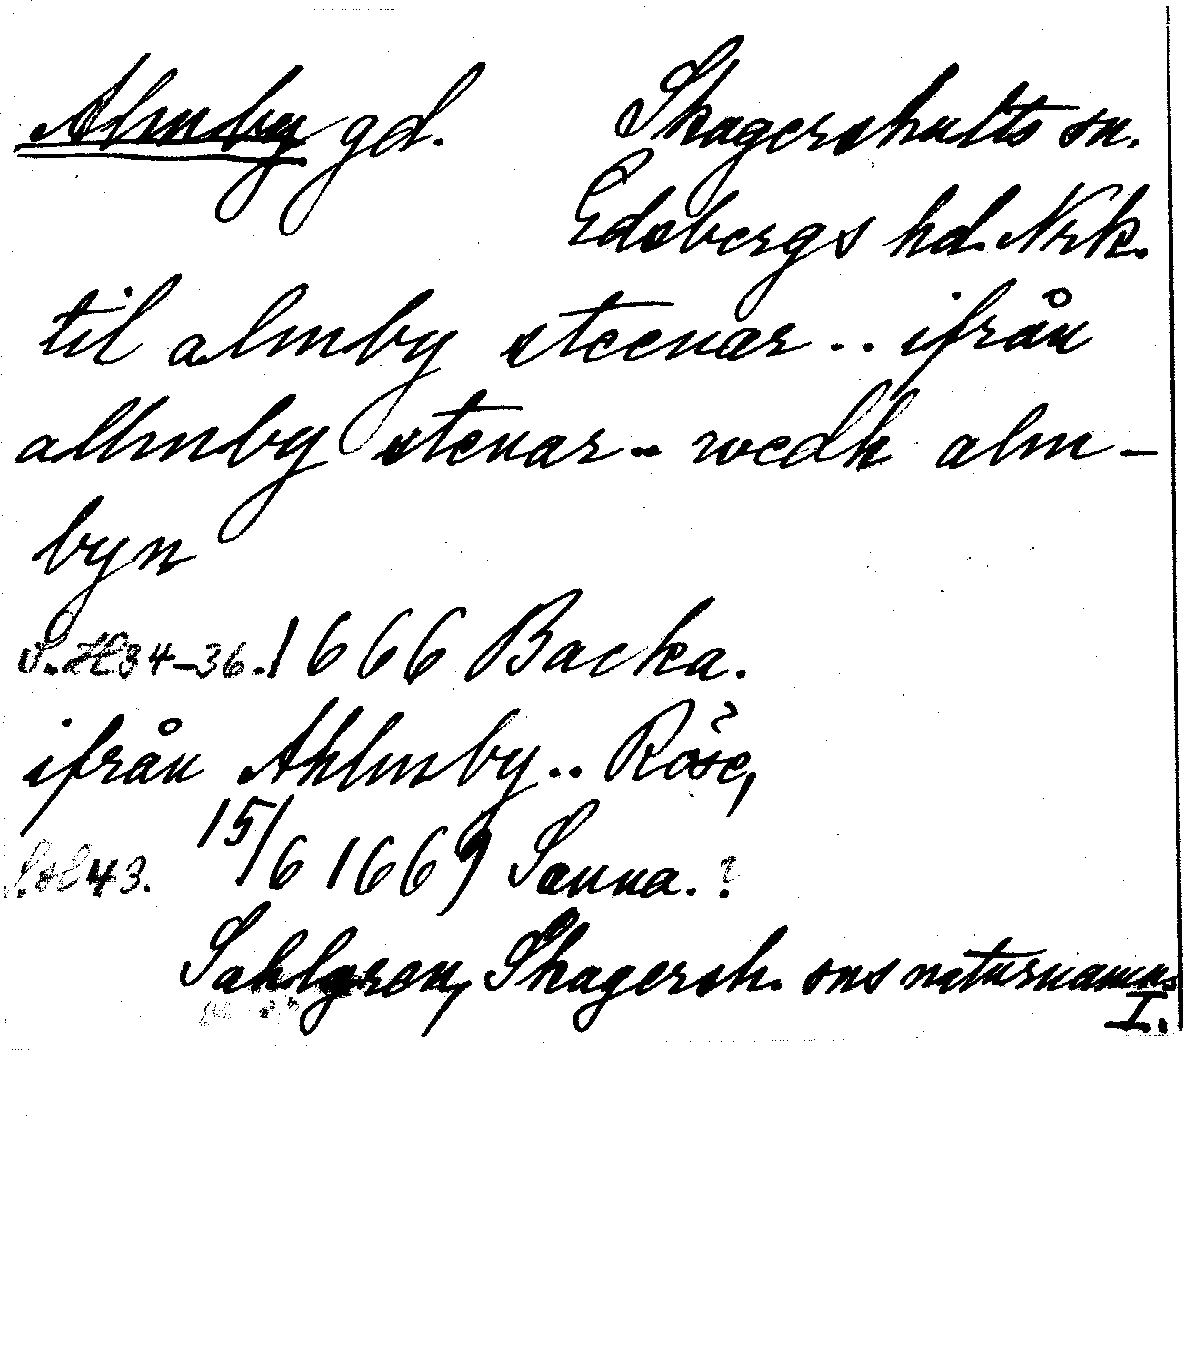 Almby gd. Skagershults sn.
Edsbergs hd. Nrk.
til almby steenar .. ifrån
allmby stenar .. wedh alm-
byn
34-36. 1666 Backa.
ifrån Ahlmby .. Röse,
43. 15/6 1669 Sanna. ?
Sahlgren, Skagersh. sns naturnamn
I.